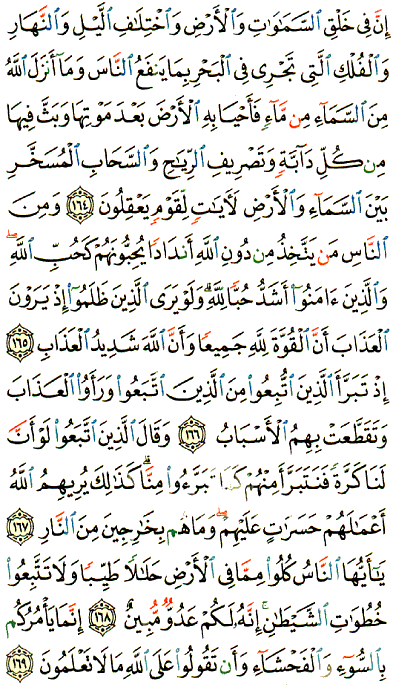 إِنَّ فِي خَلْقِ السَّمَاوَاتِ وَالْأَرْضِ وَاخْتِلَافِ اللَّيْلِ وَالنَّهَارِ
وَالْفُلْكِ الَّتِي تَجْرِي فِي الْبَحْرِ بِمَا يَنفَعُ النَّاسَ وَمَا أَنزَلَ اللَّهُ
مِنَ السَّمَاءِ مِن مَّاءٍ فَأَحْيَا بِهِ الْأَرْضَ بَعْدَ مَوْتِهَا وَبَثَّ فِيهَا
مِن كُلِّ دَابَّةٍ وَتَصْرِيفِ الرِّيَاحِ وَالسَّحَابِ الْمُسَخَّرِ
بَيْنَ السَّمَاءِ وَالْأَرْضِ لَآيَاتٍ لِّقَوْمٍ يَعْقِلُونَ ١٦٤ وَمِنَ
النَّاسِ مَن يَتَّخِذُ مِن دُونِ اللَّهِ أَندَادًا يُحِبُّونَهُمْ كَحُبِّ اللَّهِ ۖ
وَالَّذِينَ ءَامَنُوٓا أَشَدُّ حُبًّا لِّلَّهِ ۗ وَلَوْ يَرَى الَّذِينَ ظَلَمُوٓا إِذْ يَرَوْنَ
الْعَذَابَ أَنَّ الْقُوَّةَ لِلَّهِ جَمِيعًا وَأَنَّ اللَّهَ شَدِيدُ الْعَذَابِ ١٦٥
إِذْ تَبَرَّأَ الَّذِينَ اتُّبِعُوا مِنَ الَّذِينَ اتَّبَعُوا وَرَأَوُا الْعَذَابَ
وَتَقَطَّعَتْ بِهِمُ الْأَسْبَابُ ١٦٦ وَقَالَ الَّذِينَ اتَّبَعُوا لَوْ أَنَّ
لَنَا كَرَّةً فَنَتَبَرَّأَ مِنْهُمْ كَمَا تَبَرَّءُوا مِنَّا ۗ كَذَٰلِكَ يُرِيهِمُ اللَّهُ
أَعْمَالَهُمْ حَسَرَاتٍ عَلَيْهِمْ ۖ وَمَا هُم بِخَارِجِينَ مِنَ النَّارِ ١٦٧
يَٰٓأَيُّهَا النَّاسُ كُلُوا مِمَّا فِي الْأَرْضِ حَلَالًا طَيِّبًا وَلَا تَتَّبِعُوا
خُطُوَاتِ الشَّيْطَانِ ۚ إِنَّهُ لَكُمْ عَدُوٌّ مُّبِينٌ ١٦٨ إِنَّمَا يَأْمُرُكُم
بِالسُّوءِ وَالْفَحْشَاءِ وَأَن تَقُولُوا عَلَى اللَّهِ مَا لَا تَعْلَمُونَ ١٦٩